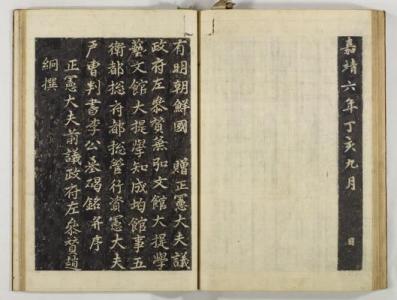 嘉靖六年丁亥九月 日
有明朝鮮國 贈正憲大夫議
政府左叅贊兼弘文館大提學
藝文館大提學知成均館事五
衛都摠府都摠管行資憲大夫
戶曹判書李公墓碣銘并序
正憲大夫前議政府左叅贊趙
絅撰